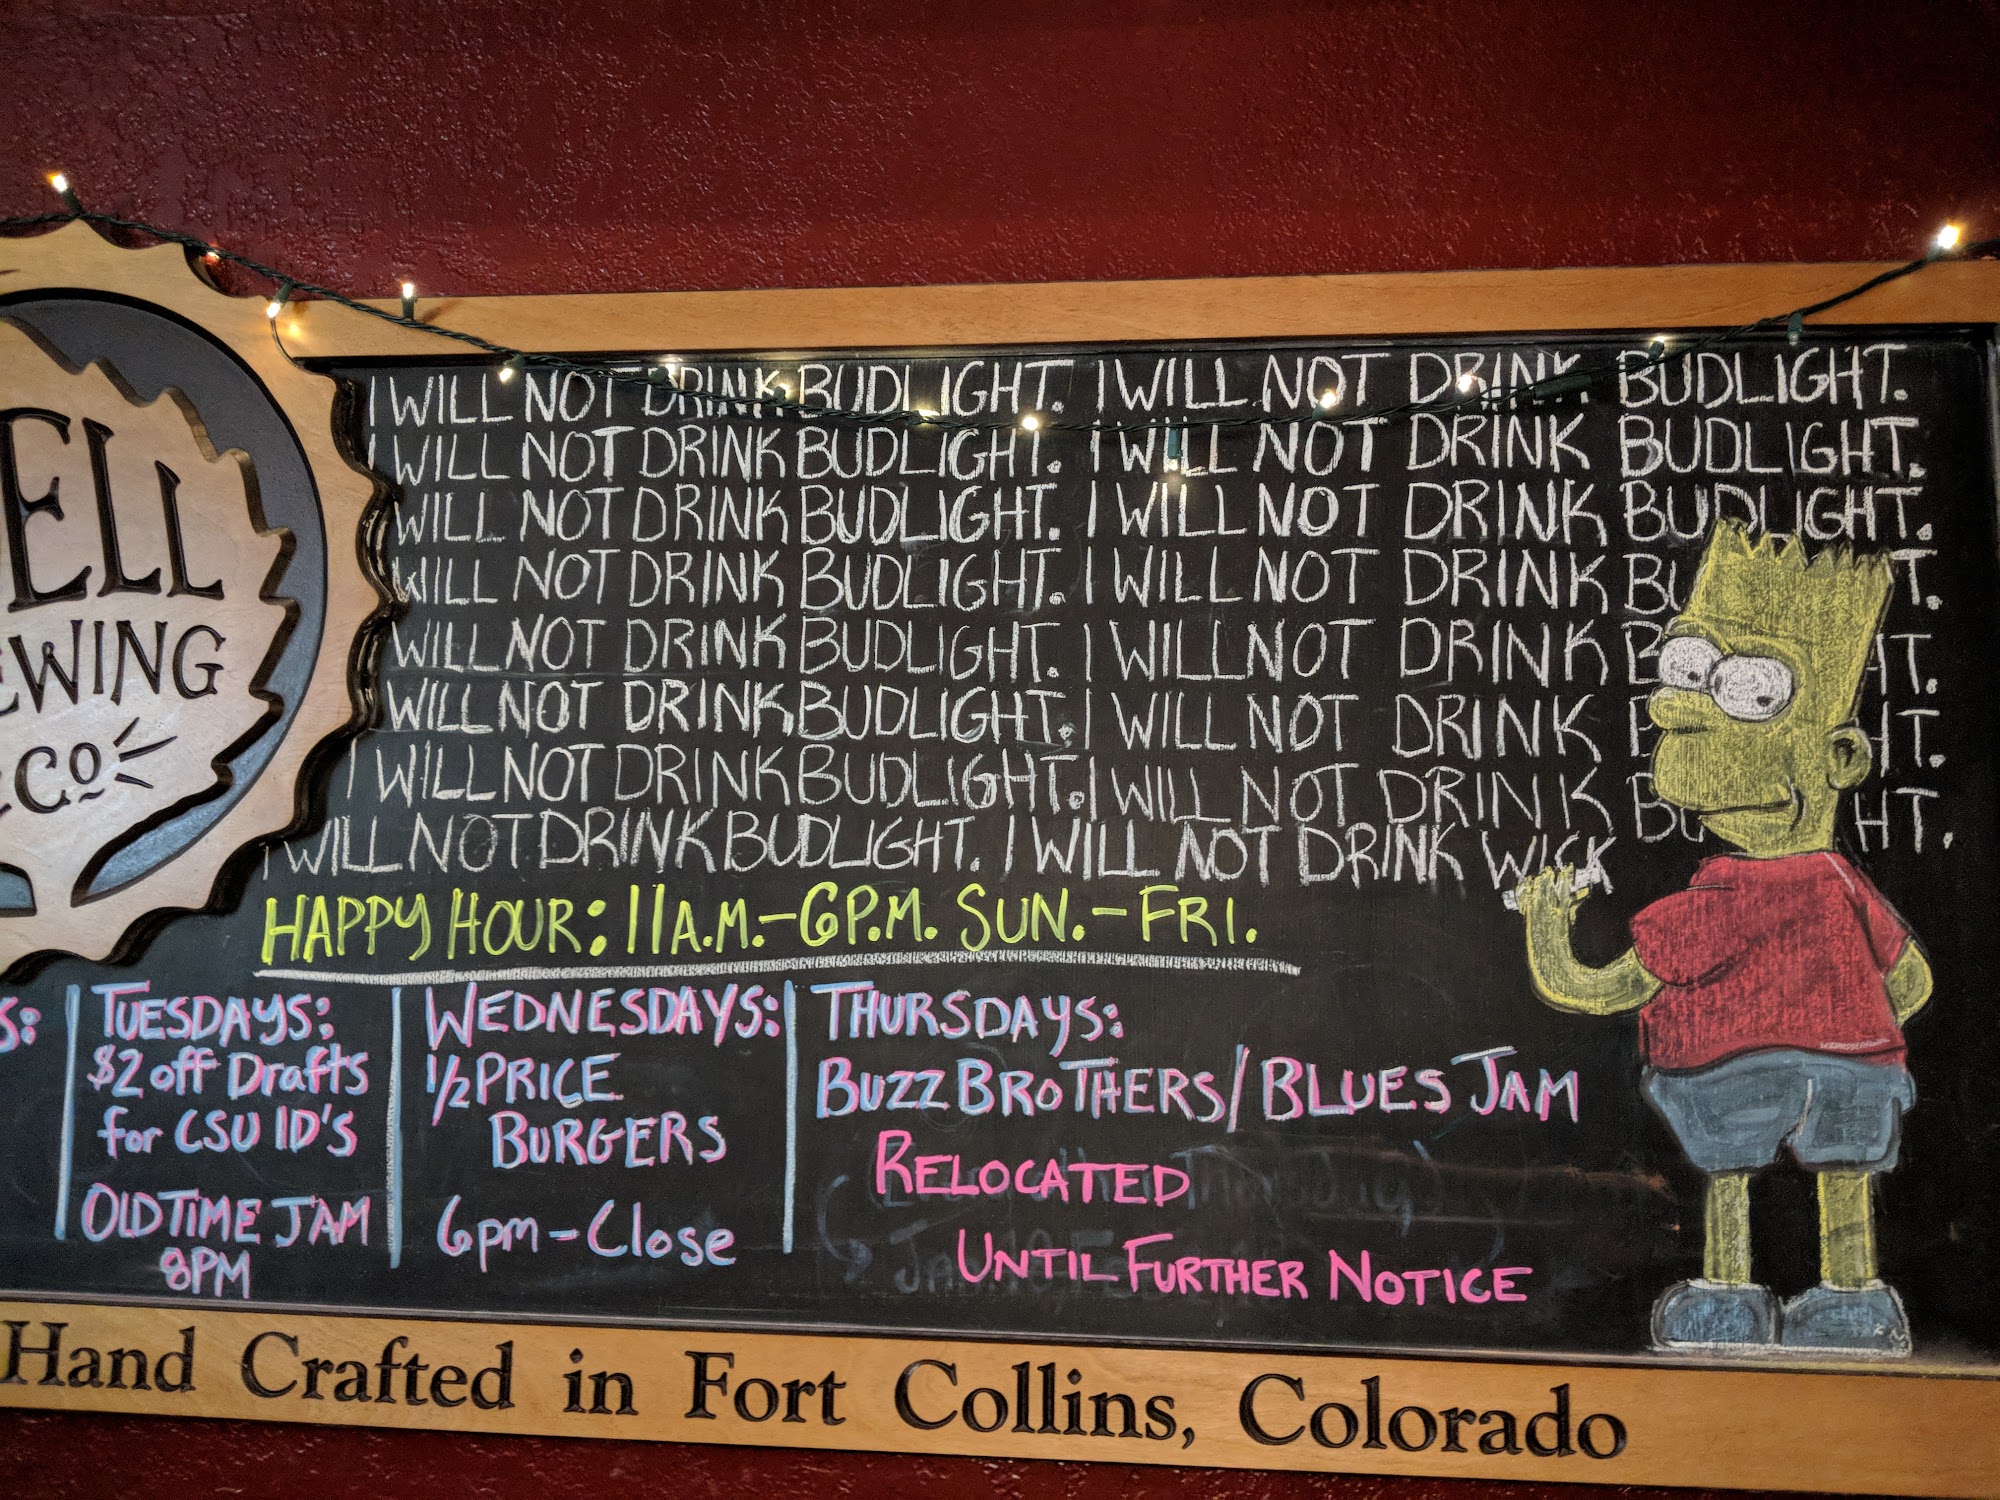 ELL
EWING
Co
I WILL NOT DRINK BUDLIGHT. I WILL NOT DRINK BUDLIGHT.
I WILL NOT DRINK BUDLIGHT. I WILL NOT DRINK BUDLIGHT.
WILL NOT DRINK BUDLIGHT. I WILL NOT DRINK BUDLIGHT.
WILL NOT DRINK BUDLIGHT. I WILL NOT DRINK BU T.
WILL NOT DRINK BUDLIGHT. I WILL NOT DRINK B HT.
WILL NOT DRINK BUDLIGHT. I WILL NOT DRINK B HT.
I WILL NOT DRINK BUDLIGHT. I WILL NOT DRINK BU HT.
I WILL NOT DRINK BUDLIGHT. I WILL NOT DRINK WICK
HAPPY HOUR: 11A.M.-6P.M. SUN.-FRI.
S:
TUESDAYS:
$2 off Drafts
for CSU ID'S
OLD TIME JAM
8PM
WEDNESDAYS:
1/2 PRICE
BURGERS
6pm-Close
THURSDAYS:
BUZZ BROTHERS/BLUES JAM
RELOCATED
UNTIL FURTHER NOTICE
Hand Crafted in Fort Collins, Colorado